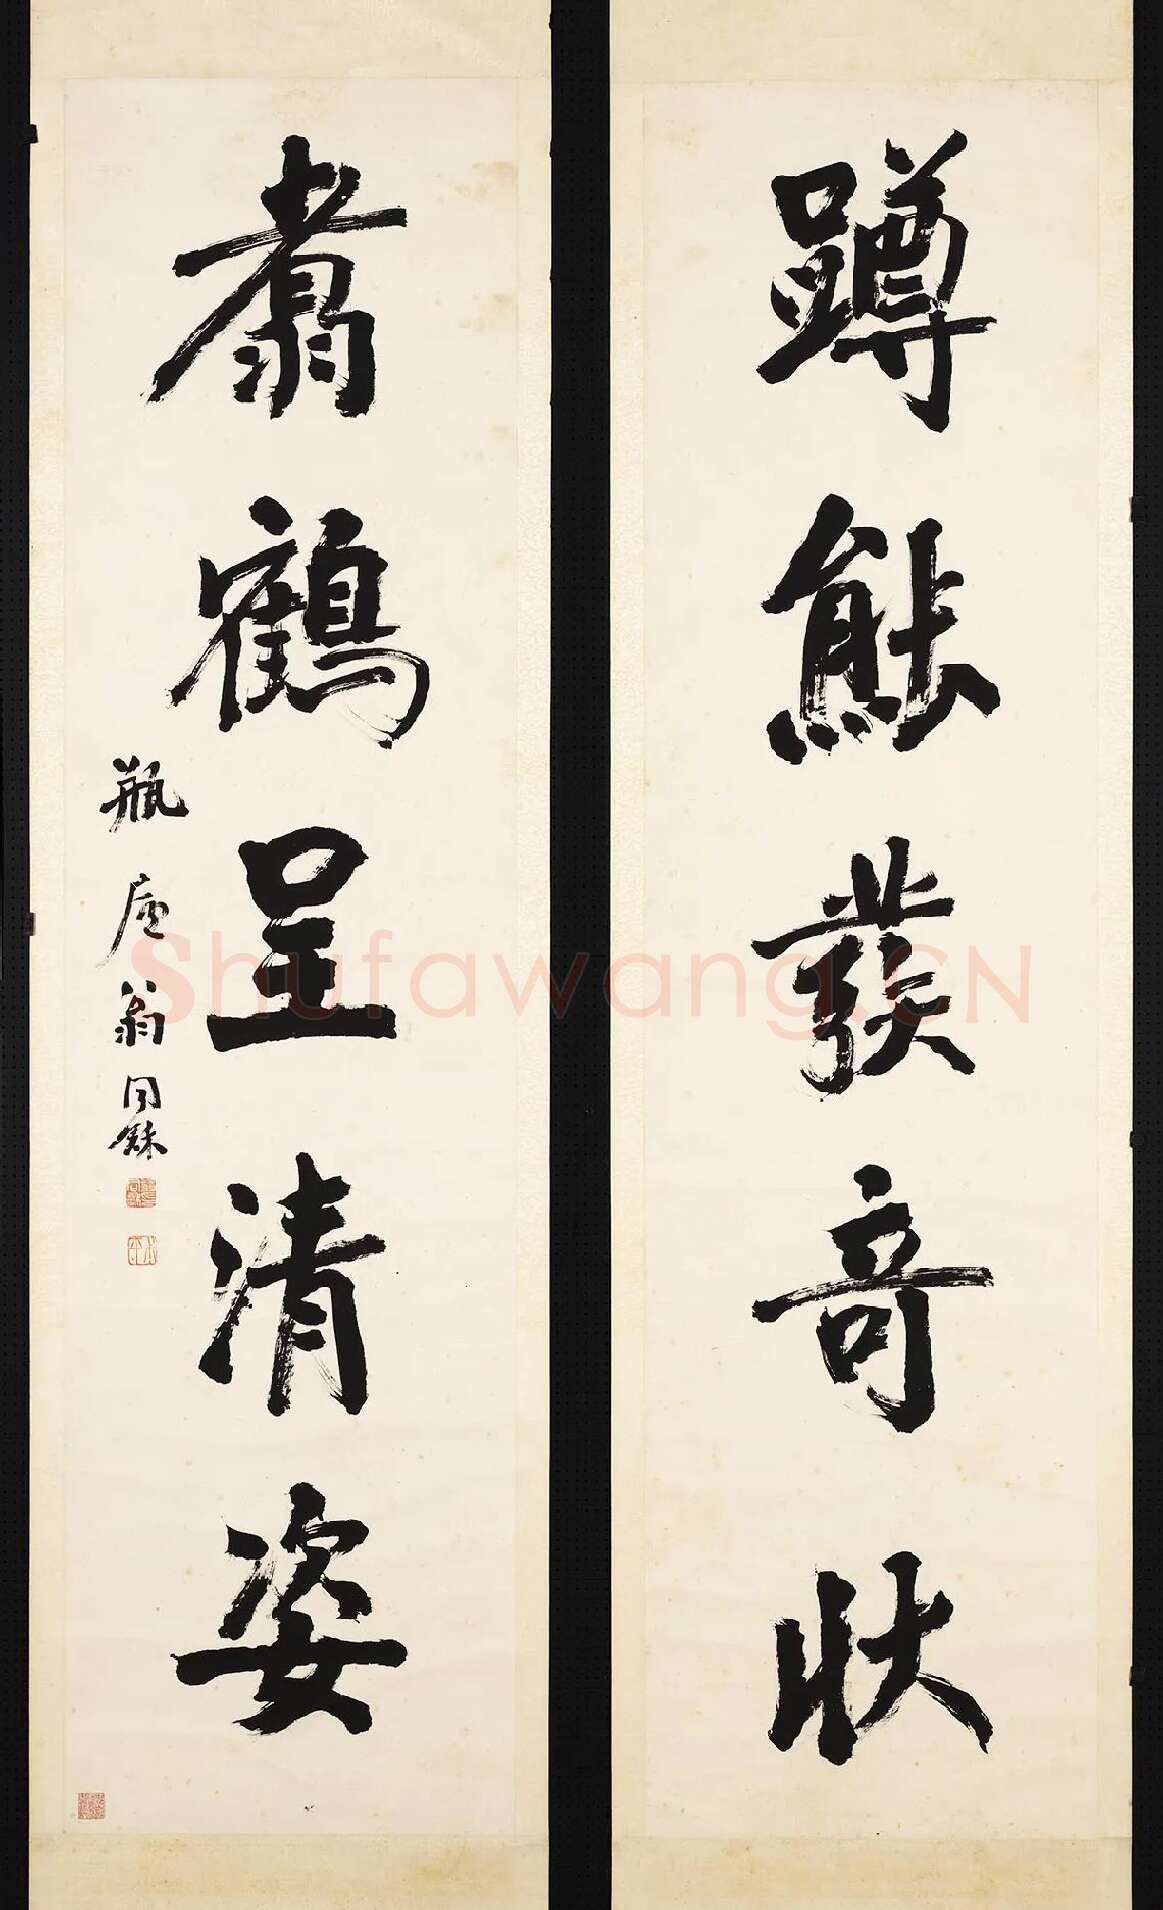 蹲熊發奇狀
翥鶴呈清姿
瓶廬翁同龢
Shufawang.CN